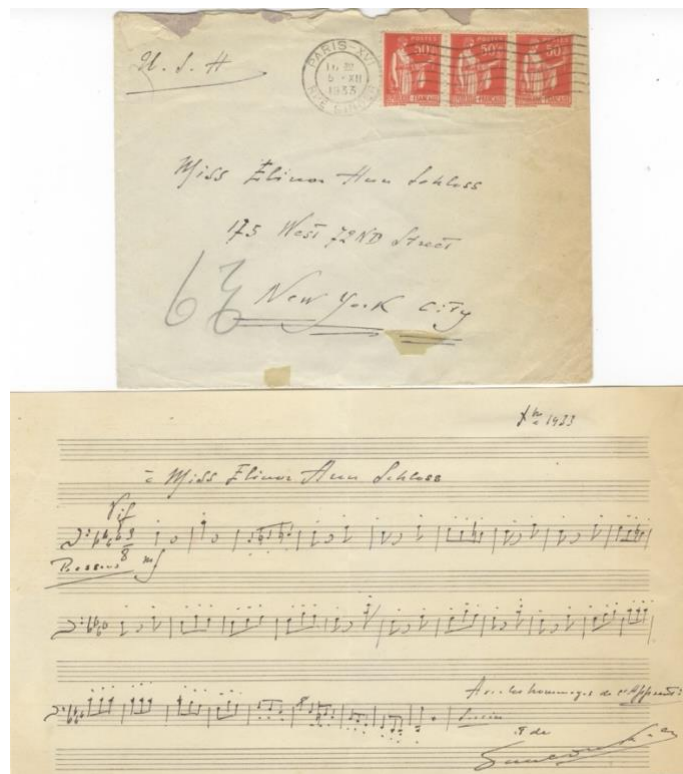 U. S. A
PARIS-XVI
16 22
5 -XII
1933
POSTES POSTES POSTES
50c 50c 50c
Miss Elinor Ann Schloss
175 West 72ND Street
New York City
63
Xbre 1933
à Miss Elinor Ann Schloss
Vif
3
8
Bassons mf
Avec les hommages de l'Apprenti:
Sorcier
P. de